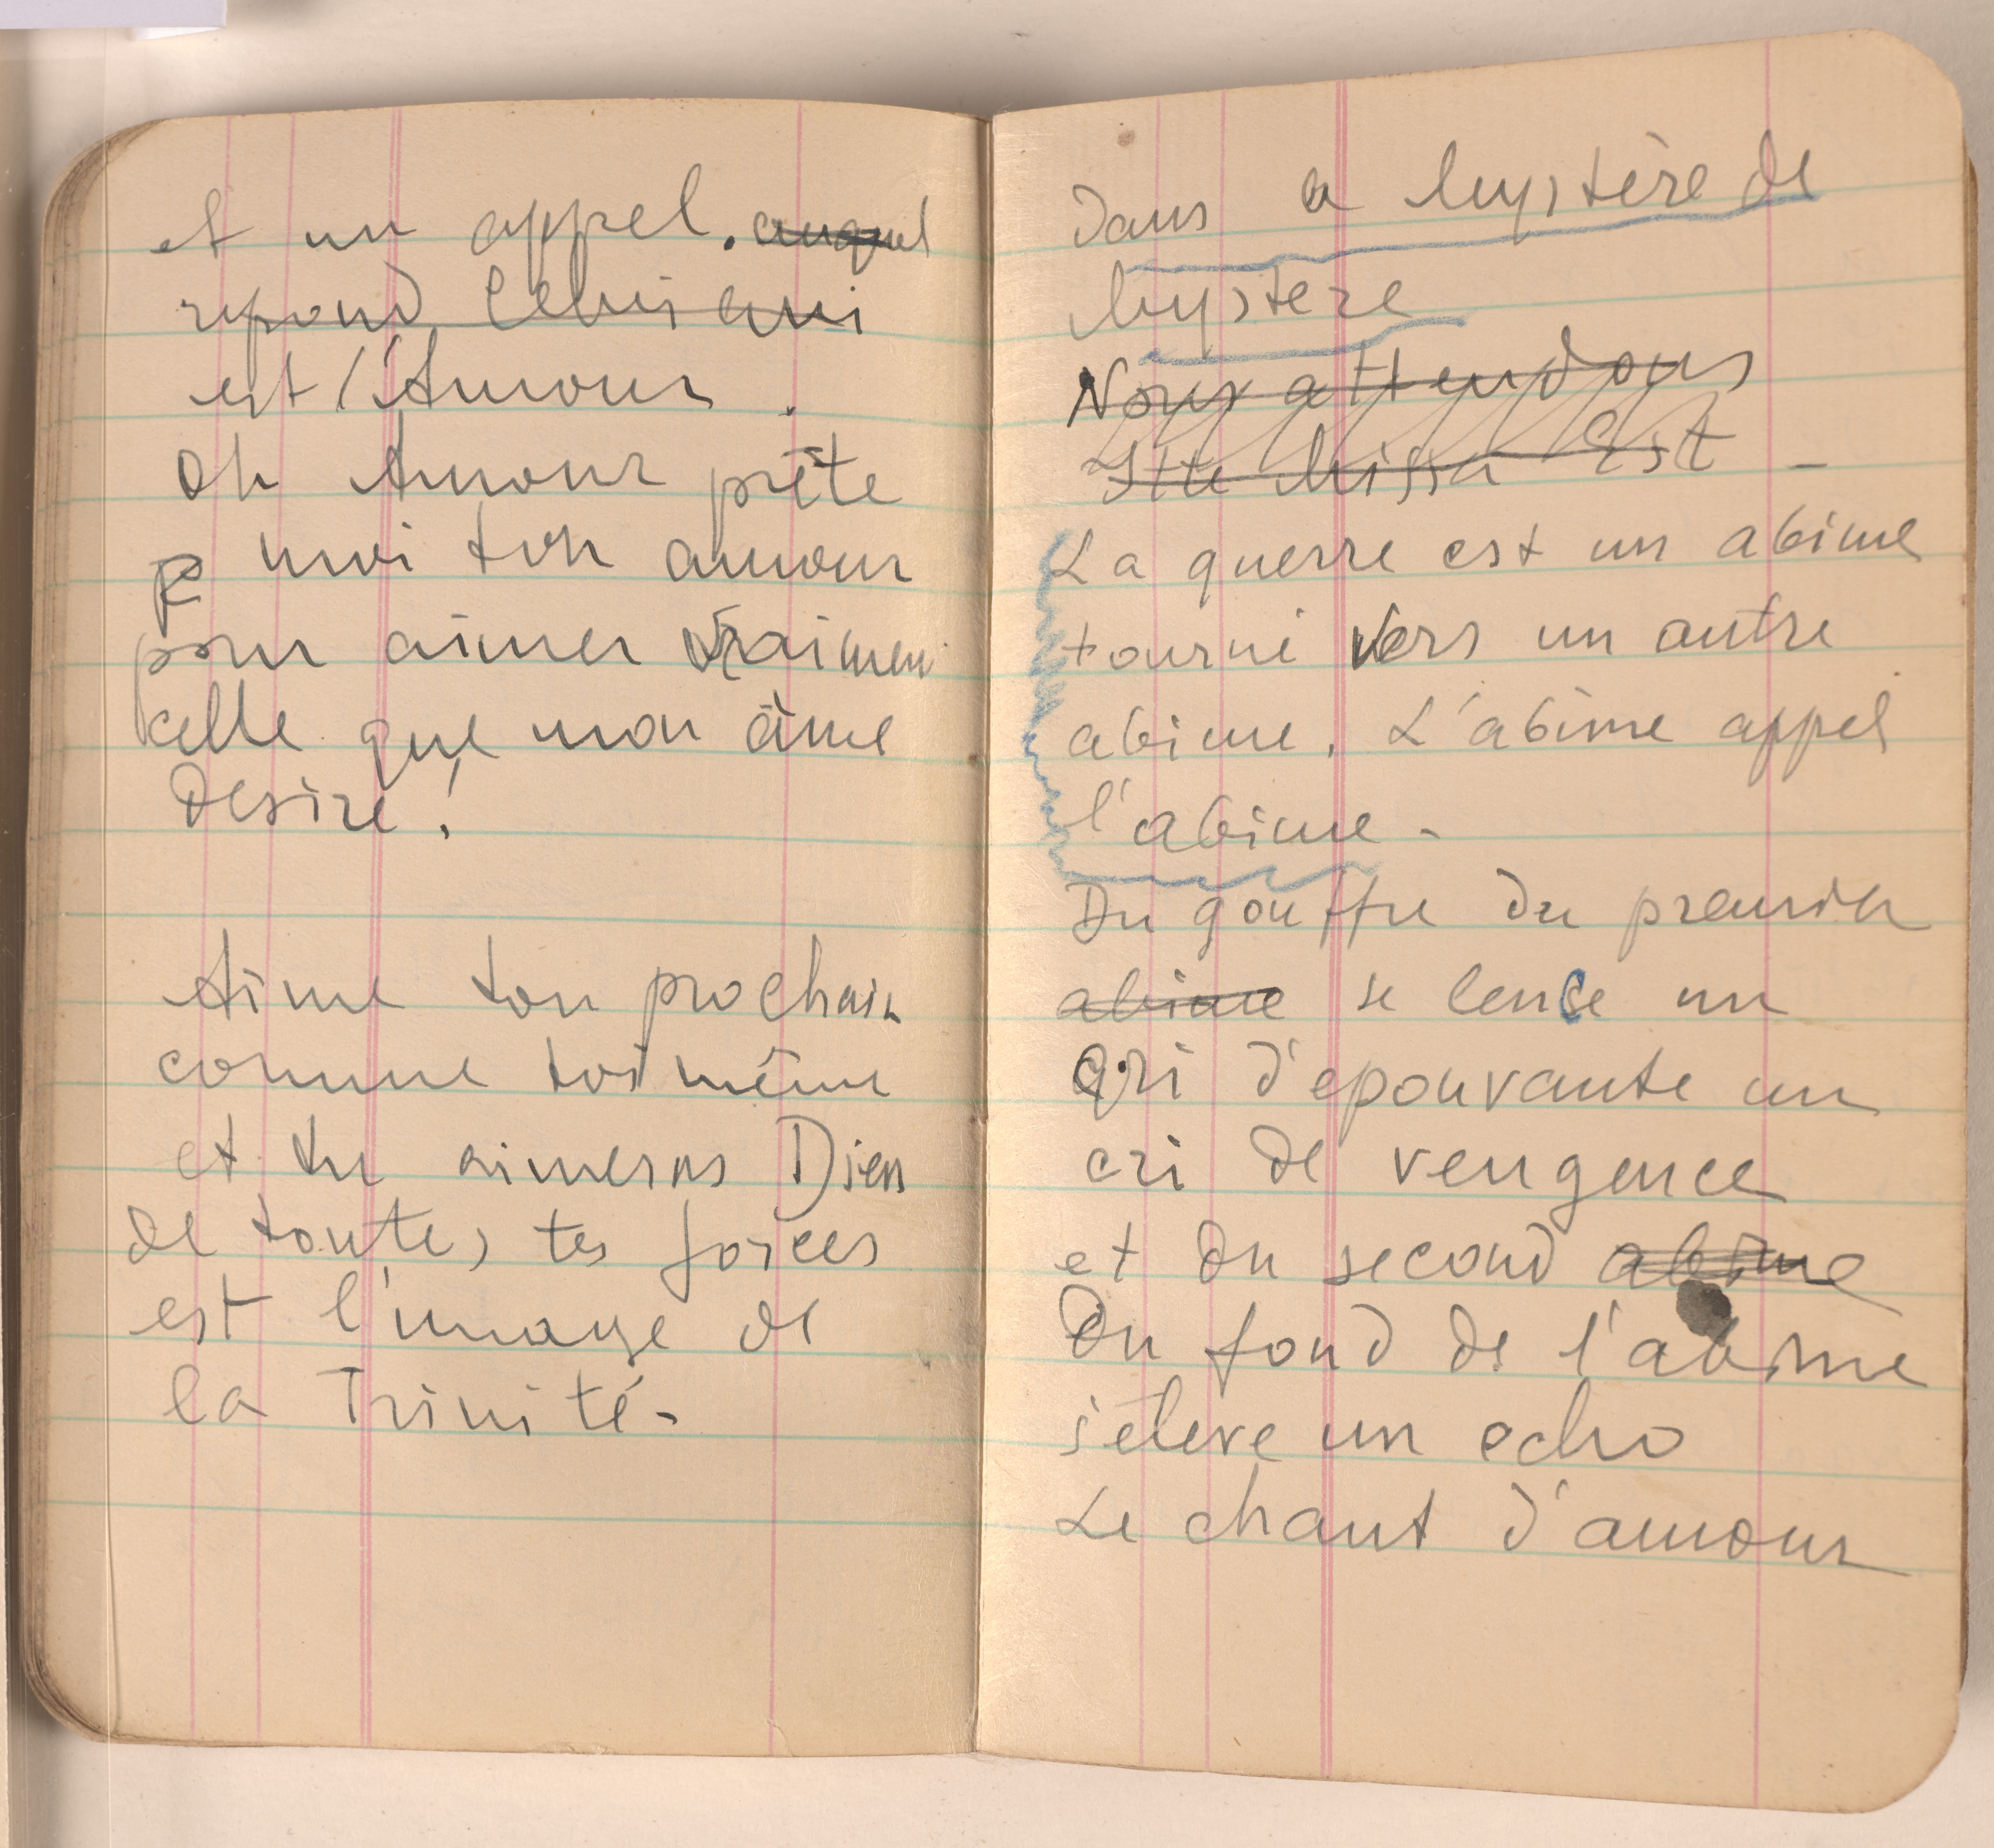 et un appel. auquel
repond Celui qui
est l'Amour.
Oh Amour prête
moi ton amour
pour aimer vraimen
celle que mon âme
desire!
Aime ton prochain
comme toi même
et tu aimeras Dieu
de toutes tes forces
est l'image de
la Trinité-
Dans a Mystère de
Mystere
Nous attendons
Ite Missa Est -
La guerre est un abime
tourné vers un autre
abime. L'abime appel
l'abime -
Du gouffre du premier
abime se lence un
cri d'epouvante un
cri de vengence
et du second abime
Du fond de l'abime
s'eleve un echo
Le chant d'amour